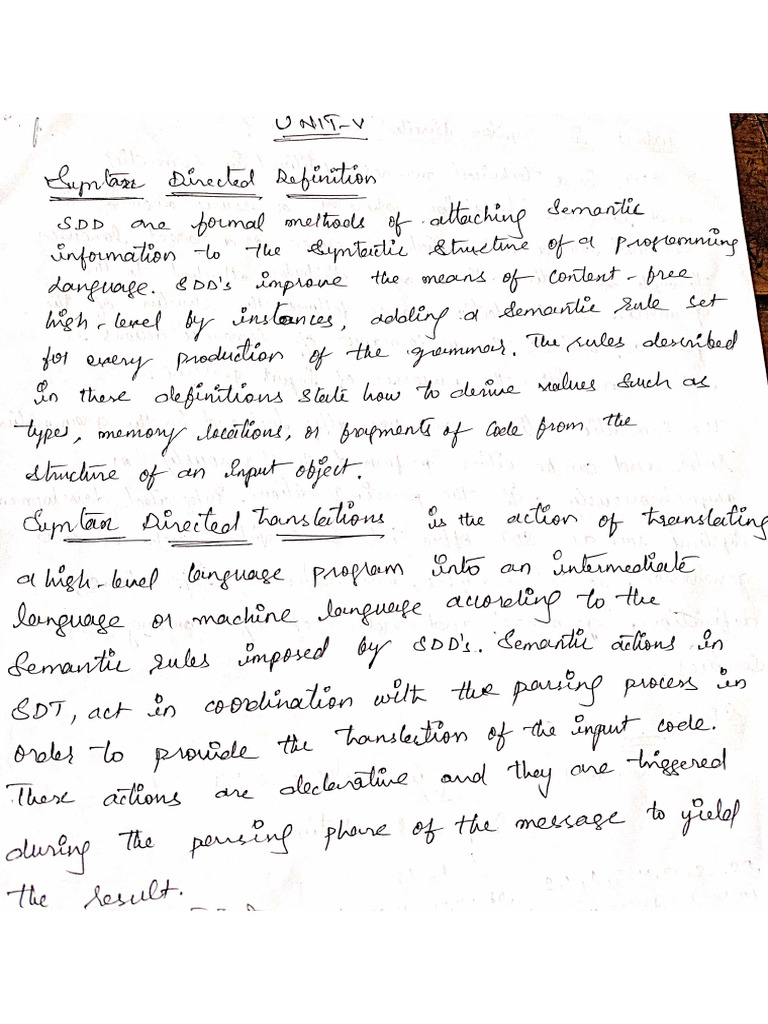 UNIT-V
Syntax Directed Definition
SDD are formal methods of attaching semantic
information to the syntactic structure of a programming
Language. SDD's improve the means of content-free
high-level by instances, adding a semantic rule set
for every production of the grammar. The rules described
in these definitions state how to derive values such as
types, memory locations, or fragments of code from the
structure of an input object.
Syntax Directed translations is the action of translating
a high-level language program into an intermediate
language or machine language according to the
semantic rules imposed by SDD's. Semantic actions in
SDT, act in coordination with the parsing process in
order to provide the translation of the input code.
These actions are declarative and they are triggered
during the parsing phase of the message to yield
the result.